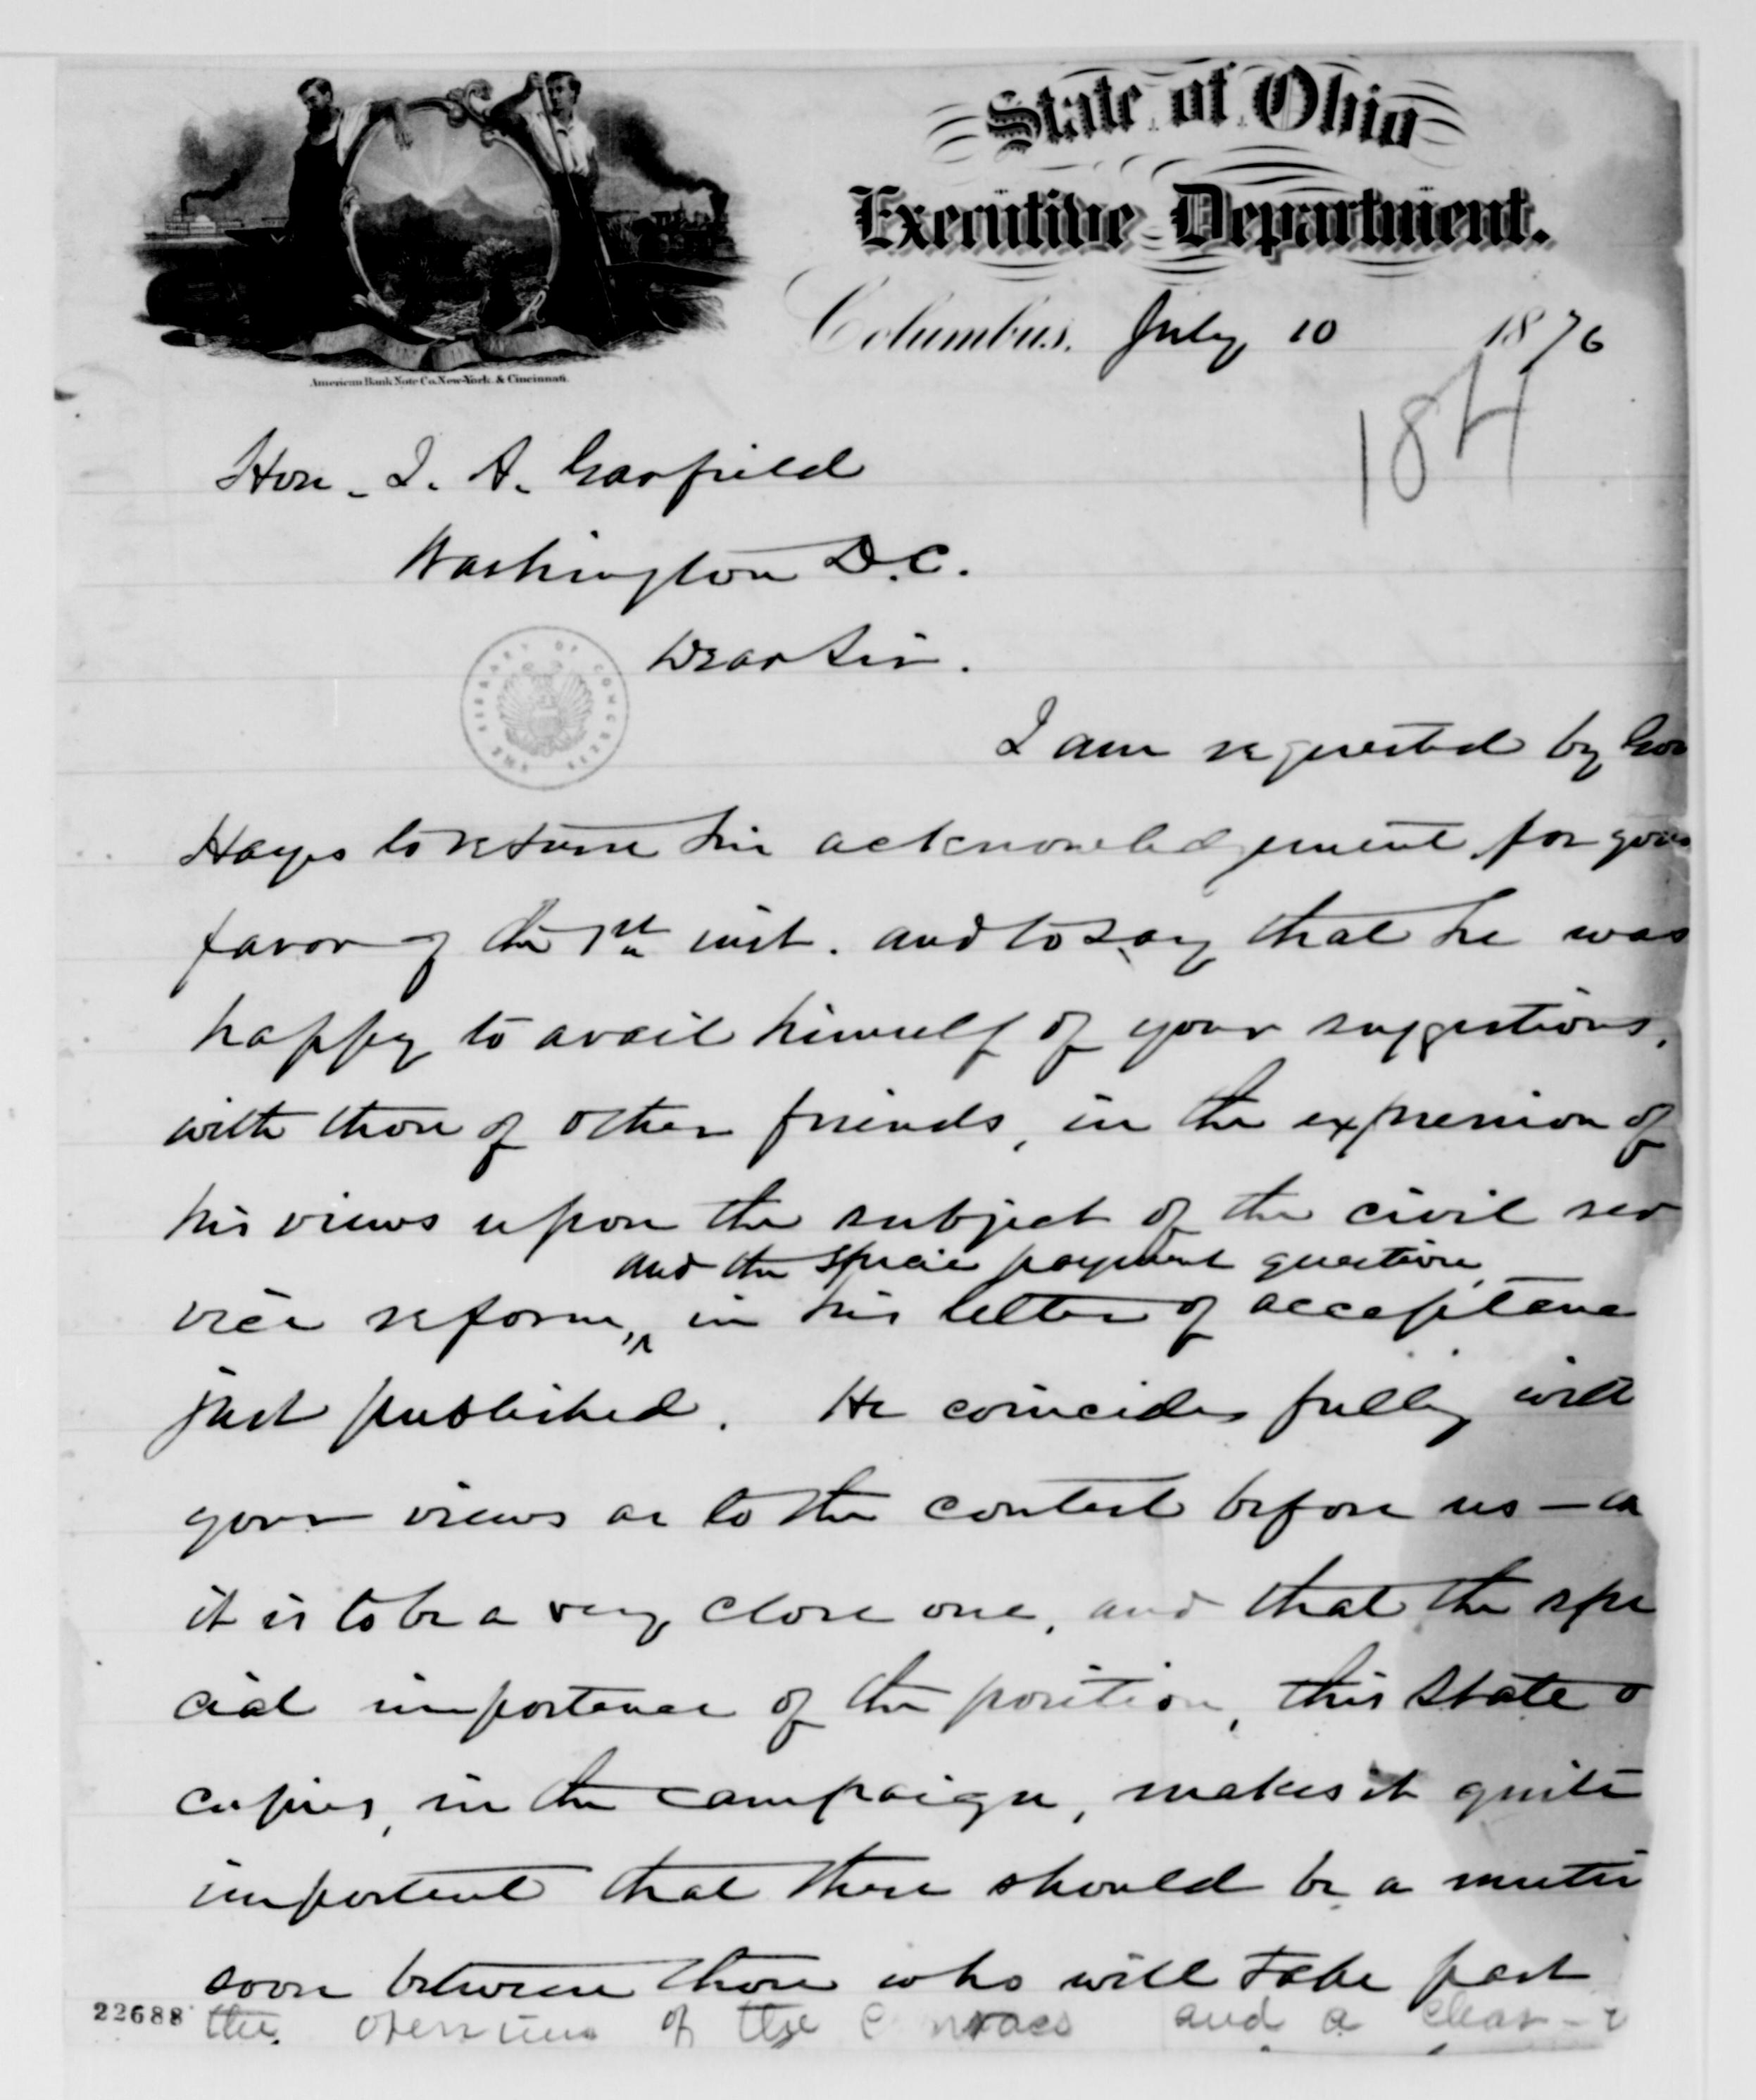 State of Ohio
Executive Department.
Columbus, July 10 1876
American Bank Note Co. New-York & Cincinnati.
184
Hon. J. A. Garfield
Washington D.C.
THE LIBRARY OF CONGRESS
Dear Sir.
I am requested by Gov
Hayes to return his acknowledgement for your
favor of the 1st inst. and to say that he was
happy to avail himself of your suggestions,
with those of other friends, in the expression of
his views upon the subject of the civil ser
and the specie payment question,
vice reform, in his letter of acceptance
just published. He coincides fully with
your views as to the contest before us —
it is to be a very close one, and that the spe
cial importance of the position, this State o
cupies, in the campaign, makes it quite
important that there should be a meetin
soon between those who will take part
22688
the opening of the canvass and a clear